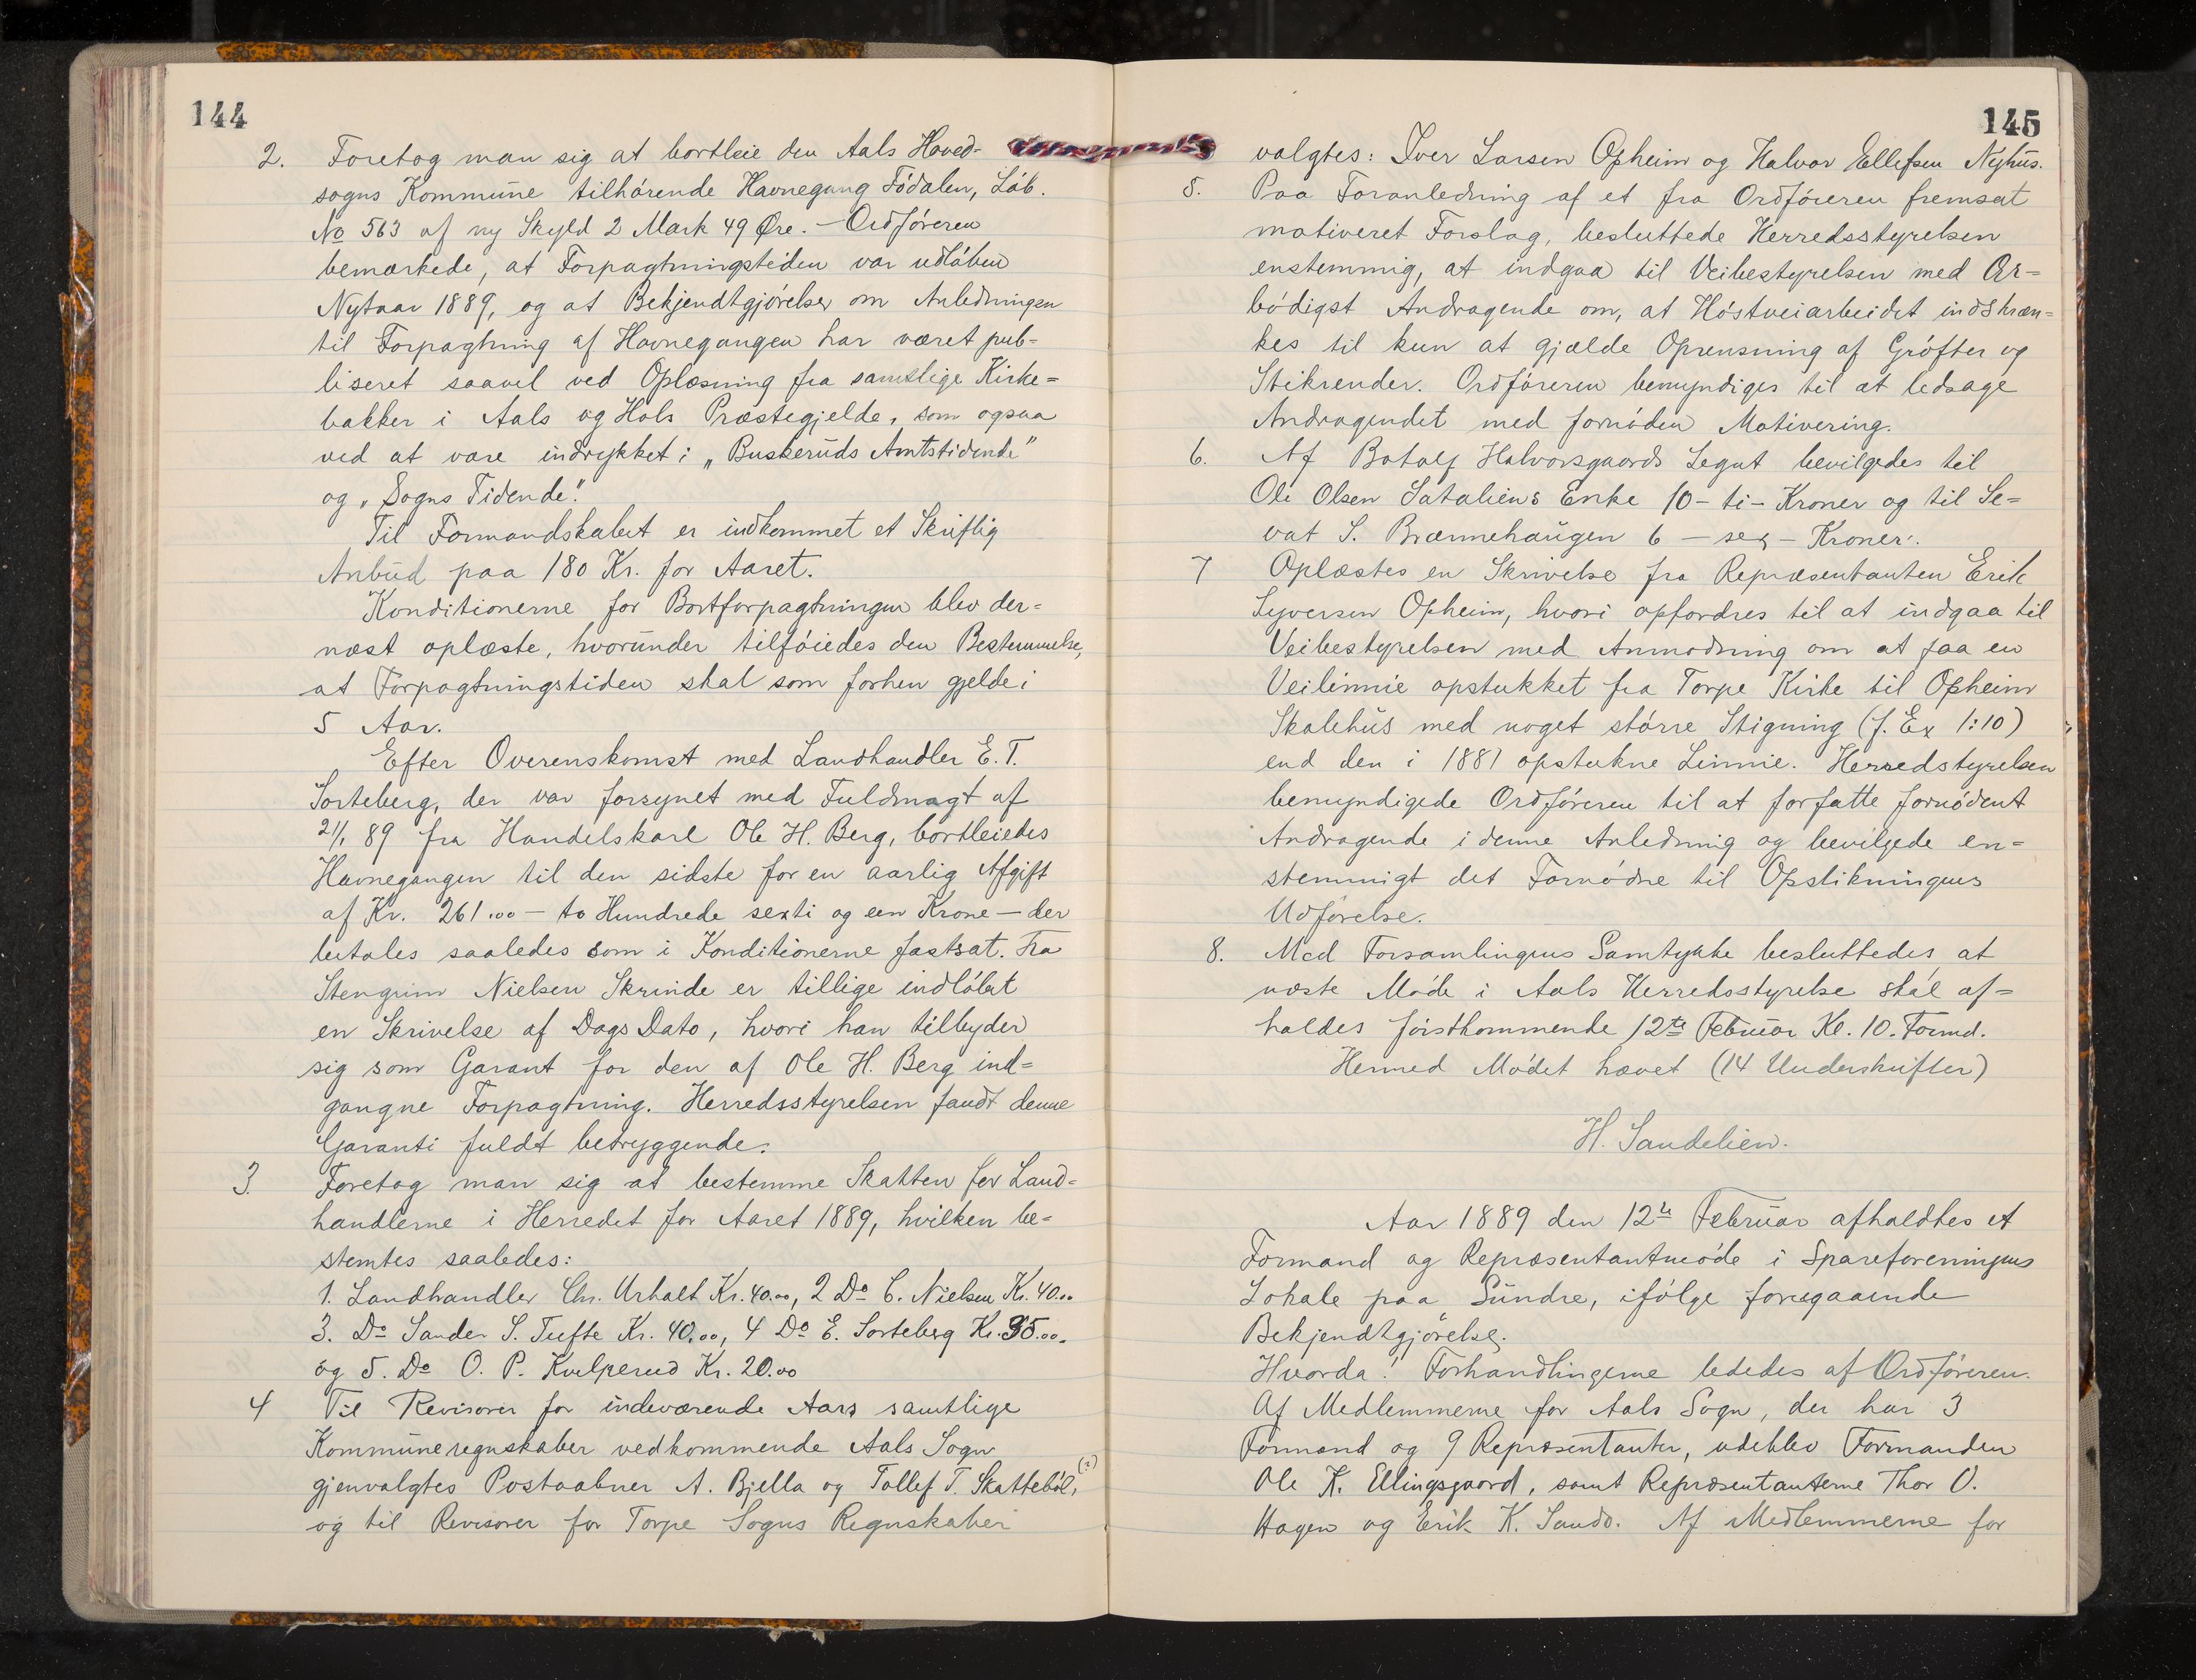 144
2. Foretog man sig at bortleie den Aals Hoved-
sogns Kommune tilhørende Havnegang Fødalen, Løb.
No 563 af ny Skyld 2 Mark 49 Øre. - Ordføreren
bemærkede, at Forpagtningstiden var udløben
Nytaar 1889, og at Bekjendtgjørelser om Anledningen
til Forpagtning af Havnegangen har været pub-
liseret saavel ved Oplæsning fra samtlige Kirke=
bakker i Aals og Hols Præstegjelde, som ogsaa
ved at være indrykket i „Buskeruds Amtstidende"
og „Sogns Tidende".
Til Formandskabet er indkommet et Skriftlig
Anbud paa 180 Kr. for Aaret.
Konditionerne for Bortforpagtningen blev der=
næst oplæste, hvorunder tilføiedes den Bestemmelse,
at Forpagtningstiden skal som forhen gjelde i
5 Aar.
Efter Overenskomst med Landhandler E. T.
Sorteberg, der var forsynet med Fuldmagt af
21/1 89 fra Handelskarl Ole H. Berg, bortleiedes
Havnegangen til den sidste for en aarlig Afgift
af Kr. 261.00 - to Hundrede sexti og een Krone - der
betales saaledes som i Konditionerne fastsat. Fra
Stengrim Nielsen Skrinde er tillige indløbet
en Skrivelse af Dags Dato, hvori han tilbyder
sig som Garant for den af Ole H. Berg ind=
gangne Forpagtning. Herredsstyrelsen fandt denne
Garanti fuldt betryggende.
3. Foretog man sig at bestemme Skatten for Land=
handlerne i Herredet for Aaret 1889, hvilken be=
stemtes saaledes:
1. Landhandler Chr. Urhalt Kr. 40.00, 2 Do C. Nielsen Kr. 40.00
3. Do Sander S. Tufte Kr. 40.00, 4 Do E. Sorteberg Kr. 35.00.
og 5. Do O. P. Kvelprud Kr. 20.00
4 Til Revisorer for indeværende Aars samtlige
Kommuneregnskaber vedkommende Aals Sogn
gjenvalgtes Postaabner A. Bjella og Tollef T. Skattebøl, (?)
og til Revisorer for Torpe Sogns Regnskaber
145
valgtes: Iver Larsen Opheim og Halvor Ellefsen Nyhus.
5. Paa Foranledning af et fra Ordføreren fremsat
motiveret Forslag, besluttede Herredsstyrelsen
enstemmig, at indgaa til Veibestyrelsen med Ær=
bødigst Andragende om, at Høstveiarbeidet indskræn=
kes til kun at gjælde Oprensning af Grøfter og
Stikrender. Ordføreren bemyndiges til at ledsage
Andragendet med fornøden Motivering.
6. Af Botolf Halvorsgaards Legat bevilgedes til
Ole Olsen Sataliens Enke 10 - ti - Kroner og til Se=
vat S. Brænnehaugen 6 - sex - Kroner.
7 Oplæstes en Skrivelse fra Repræsentanten Erik
Syversen Opheim, hvori opfordres til at indgaa til
Veibestyrelsen med Anmodning om at faa en
Veilinnie opstukket fra Torpe Kirke til Opheim
Skolehus med noget større Stigning (f. Ex 1:10)
end den i 1881 opstukne Linnie. Herredstyrelsen
bemyndigede Ordføreren til at forfatte fornødent
Andragende i denne Anledning og bevilgede en=
stemmigt det Fornødne til Opstikningens
Udførelse.
8. Med Forsamlingens Samtykke besluttedes, at
næste Møde i Aals Herredsstyrelse skal af=
holdes førstkommende 12te Februar Kl. 10. Formd.
Hermed Mødet hævet (14 Underskrifter)
H. Sandelien.
Aar 1889 den 12te Februar afholdtes et
Formand og Repræsentantmøde i Spareforeningens
Lokale paa Sundre, ifølge foregaaende
Bekjendtgjørelse.
Hvorda! Forhandlingerne lededes af Ordføreren.
Af Medlemmerne for Aals Sogn, der har 3
Formand og 9 Repræsentanter, udeblev Formanden
Ole K. Ellingsgaard, samt Repræsentanterne Thor O.
Hagen og Erik K. Sando. Af Medlemmerne for